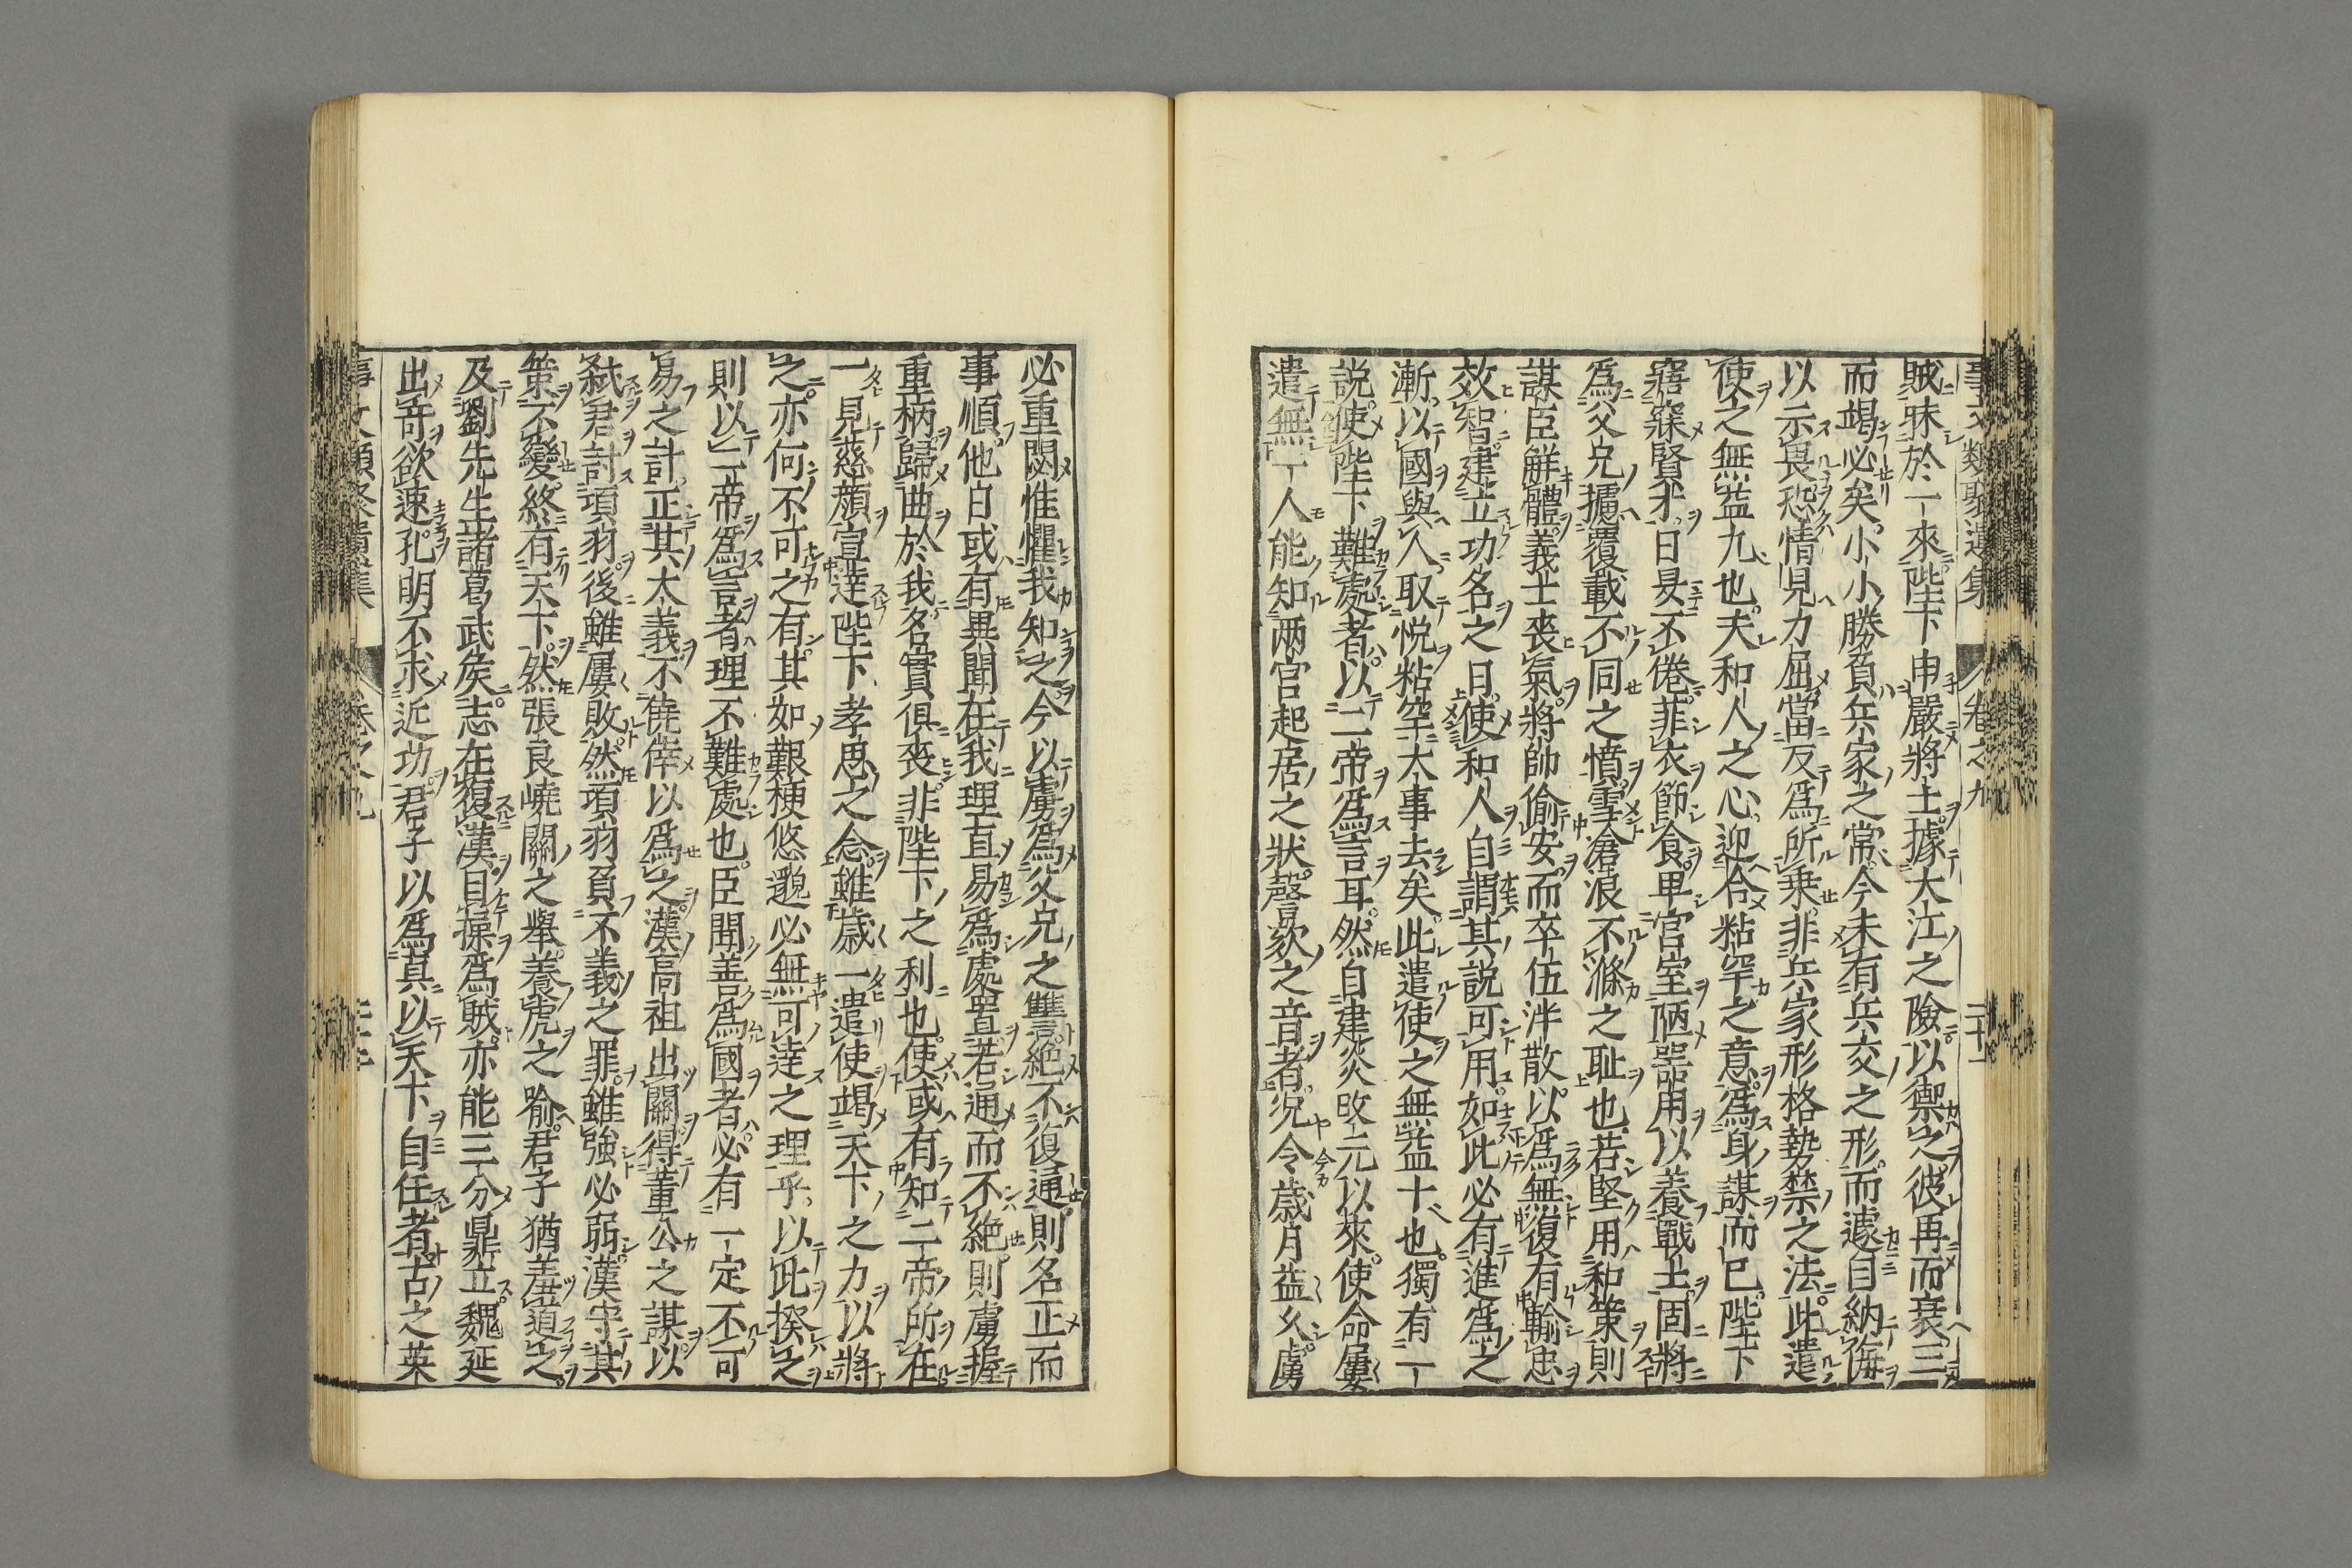 事文類聚遺集 卷之九 二十一
賊昧於一來陛下申嚴將士據大江之險以禦之彼再而衰三
而竭必矣小小勝負兵家之常今未有兵交之形而遽自納侮
以示畏恐情見力屈當反爲所乗非兵家形格勢禁之法此遣
使之無益九也夫和人之心迎合粘罕之意爲身謀而已陛下
寤寐賢才日昃不倦菲衣節食卑宮室陋噐用以養戰士固將
爲父兄攄覆載不同之憤雪滄浪不滌之耻也若堅用和策則
謀臣觧體義士丧氣將帥偷安而卒伍泮散以爲無復有輸忠
效智建立功名之日使和人自謂其說可用如此必有進爲之
漸以國與人取悦粘罕大事去矣此遣使之無益十也獨有一
説使陛下難處者以二帝爲言耳然自建炎改元以來使命屢
遣無一人能知两宮起居之狀謦欬之音者况今歲月益久虜
必重閟惟懼我知之今以虜爲父兄之讐絶不復通則名正而
事順他日或有異聞在我理直易爲處置若通而不絶則虜握
重柄歸曲於我名實俱丧非陛下之利也使或有知二帝所在
一見慈顔宣達陛下孝思之念雖歲一遣使竭天下之力以將
之亦何不可之有其如艱梗悠邈必無可達之理乎以此揆之
則以二帝爲言者理不難處也臣聞善爲國者必有一定不可
易之計正其大義不僥倖以爲之漢高祖出關得董公之謀以
弑君討項羽後雖屢敗然項羽負不義之罪雖強必弱漢守其
策不變終有天下然張良嶢關之舉養虎之喻君子猶羞道之
及劉先生諸葛武矦志在復漢目操爲賊亦能三分鼎立魏延
出竒欲速孔明不求近功君子以爲其以天下自任者古之英
事文類聚遺集 卷之九